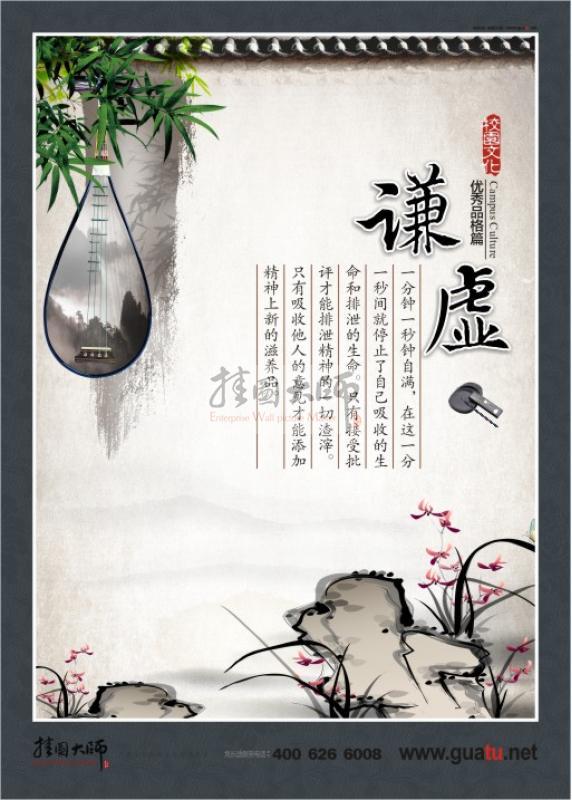 校園文化
Campus Culture
优秀品格篇
谦虚
一分钟一秒钟自满，在这一分
一秒间就停止了自己吸收的生
命和排泄的生命。只有接受批
评才能排泄精神的一切渣滓。
只有吸收他人的意见才能添加
精神上新的滋养品。
挂图大师
Enterprise Wall picture Master
挂图大师
400 626 6008
www.guatu.net